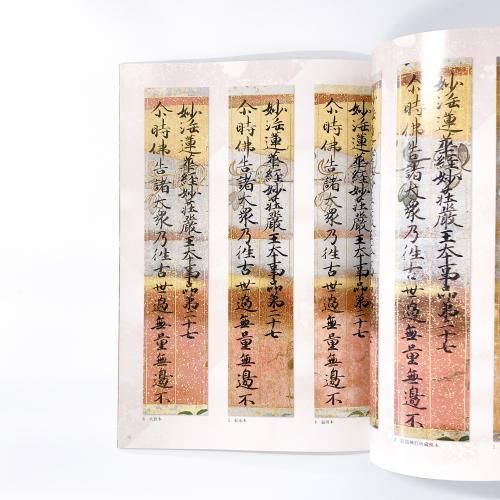 妙法蓮華経妙莊嚴王夲事品第二十七
尒時佛告諸大衆乃往古世過無量無邊不
妙法蓮華経妙莊嚴王夲事品第二十七
尒時佛告諸大衆乃往古世過無量無邊不
妙法蓮華経妙莊嚴王夲事品第二十七
尒時佛告諸大衆乃往古世過無量無邊不
妙法蓮華経妙莊嚴王夲事品第二十七
尒時佛告諸大衆乃往古世過無量無邊不